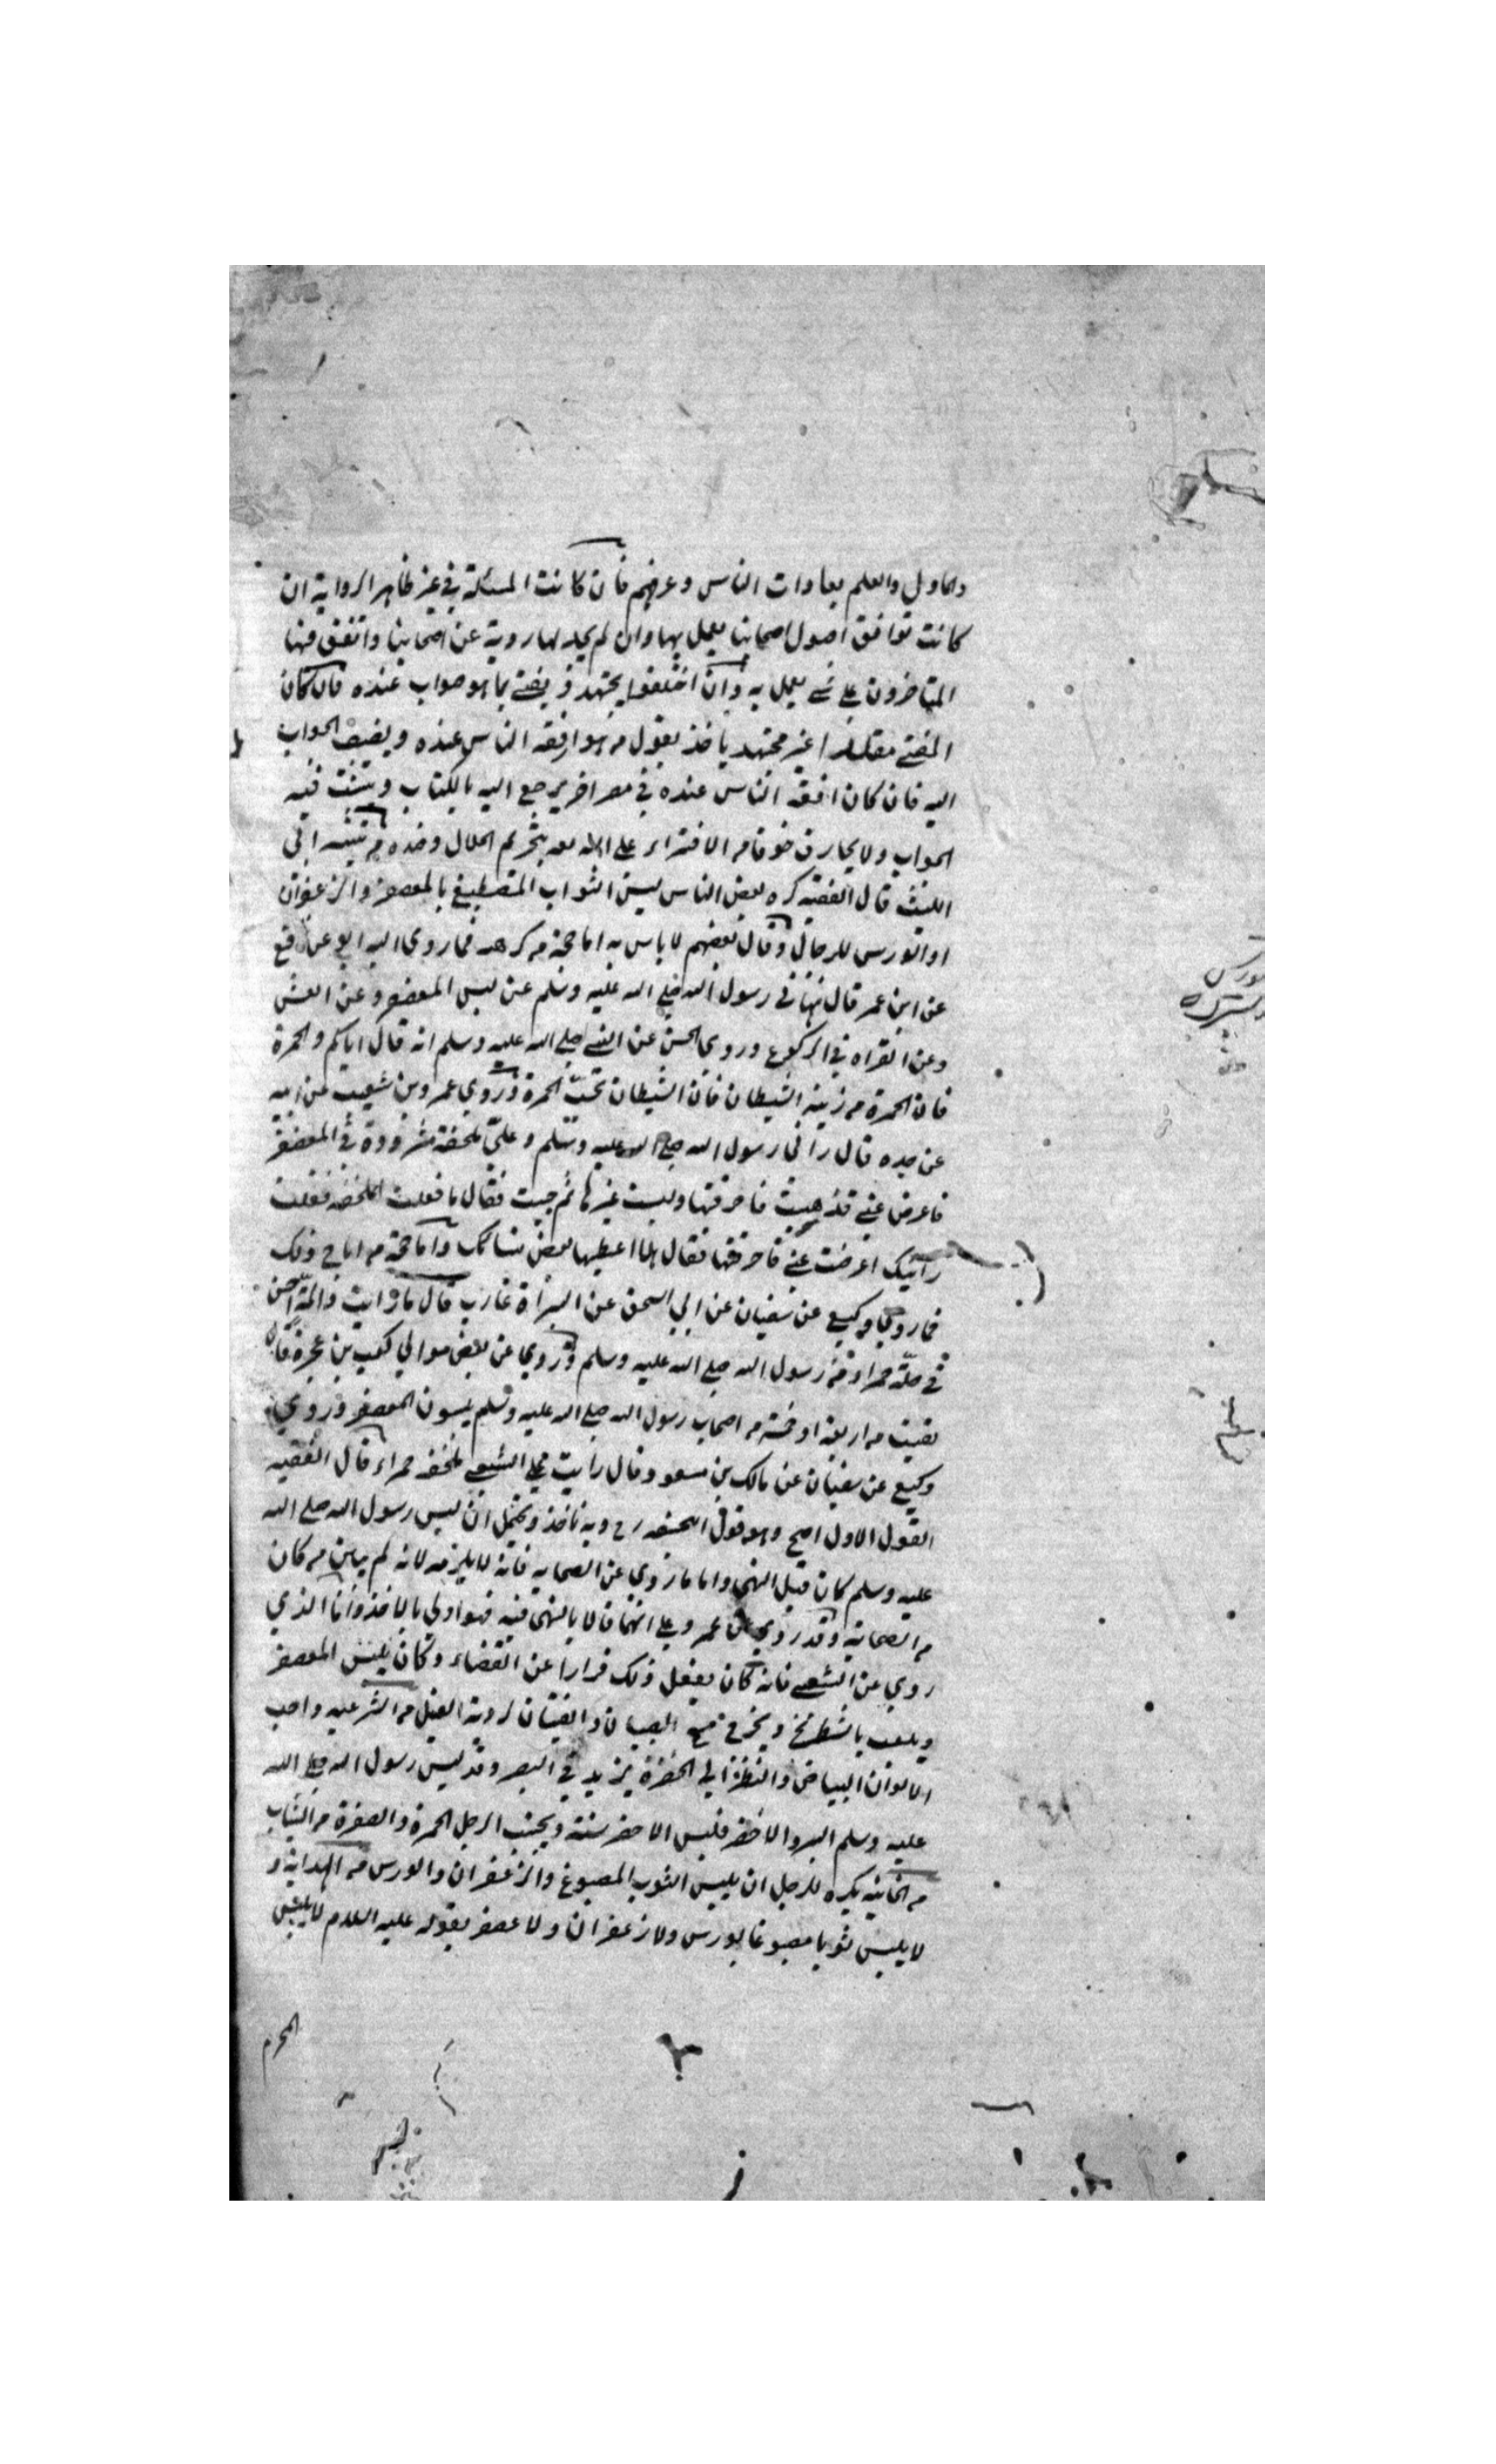 والماول والعلم بعادات الناس وعرفهم فان كانت المسئلة في غير ظاهر الرواية ان
كانت توافق اصول اصحابنا يعمل بها وان لم يجد لها روية عن اصحابنا واتفق فيها
المتاخرون على شي يعمل به وان اختلفوا يجتهد ويفتي بما هو صواب عنده فان كان
المفتي مقلدا غير مجتهد ياخذ بقول من هو افقه الناس عنده ويضيف الجواب
اليه فان كان افقه الناس عنده في مصر اخر يرجع اليه بالكتاب ويتثبت فيه
الجواب ولا يجازف خوفا من الافتراء على الله بتحريم الحلال وضده من تنبيه ابي
الليث قال الفقيه كره بعض الناس لبس الثواب المصطبغ بالمعصفر والزعفران
او الورس للرجال وقال بعضهم لا باس به اما حجة من كرهه فما روى عن نافع
عن ابن عمر قال نهاني رسول الله صلى الله عليه وسلم عن لبس المعصفر وعن
وعن القراه في الركوع وروي الحسن عن النبي صلى الله عليه وسلم انه قال اياكم والحمرة
فان الحمرة من زينة الشيطان فان الشيطان تحب الحمرة وروي عمرو بن شعيب عن ابيه
عن جده قال راني رسول الله صلى الله عليه وسلم وعلي ملحفة في المعصفر
فاعرض عني فذهبت فاحرقتها ولبست غيرها ثم جيت فقال ما فعلت الملحفة فقلت
رأيتك اعرضت عني فاحرقتها فقال هلا اعطيها بعض نسائك واما حجة من اباح ذلك
فما روي وكيع عن سفيان عن ابي اسحق عن البراة عازب قال ما رايت ذالمة احسن
في حلة حمراء من رسول الله صلى الله عليه وسلم وروي عن بعض موالي كعب بن عجرة قال
لقيت من اربعة او خمسة من اصحاب رسول الله صلى الله عليه وسلم يلبسون المعصفر وروي
وكيع عن سفيان عن مالك بن مسعود قال رايت على الشعبي ملحفة حمراء قال الفقيه
القول الاول اصح وهو قول ابحنيفه رح وبه ناخذ ويحتمل ان لبس رسول الله صلى الله
عليه وسلم كان قبل النهي واما ما روي عن الصحابه فانه لا يلزمه لانه لم يبين من كان
من الصحابة وقد روي عن عمر وعلي انهما قالا بالنهي فيه فهو اولى بالاخذ واما الذي
روي عن الشعبي فانه كان يفعل ذلك فرارا عن القضاء وكان يلبس المعصفر
ويلعب بالشطرنج ويخرج مع الصبيان والفتيان لروية الفيل من الشرعيه واحب
الالوان البياض والنظر الي الخضرة يزيد في البصر وقد لبس رسول الله صلى الله
عليه وسلم البرد الاخضر فلبس الاخضر سنة ويجتنب الرجل الحمرة والصفرة من الثياب
من الخانيه يكره للرجل ان يلبس الثوب المصبوغ والزعفران والورس من الهداية و
لا يلبس ثوبا مصبوغا بورس ولا زعفران ولا عصفر بقوله عليه السلام لا يلبس
المحرم